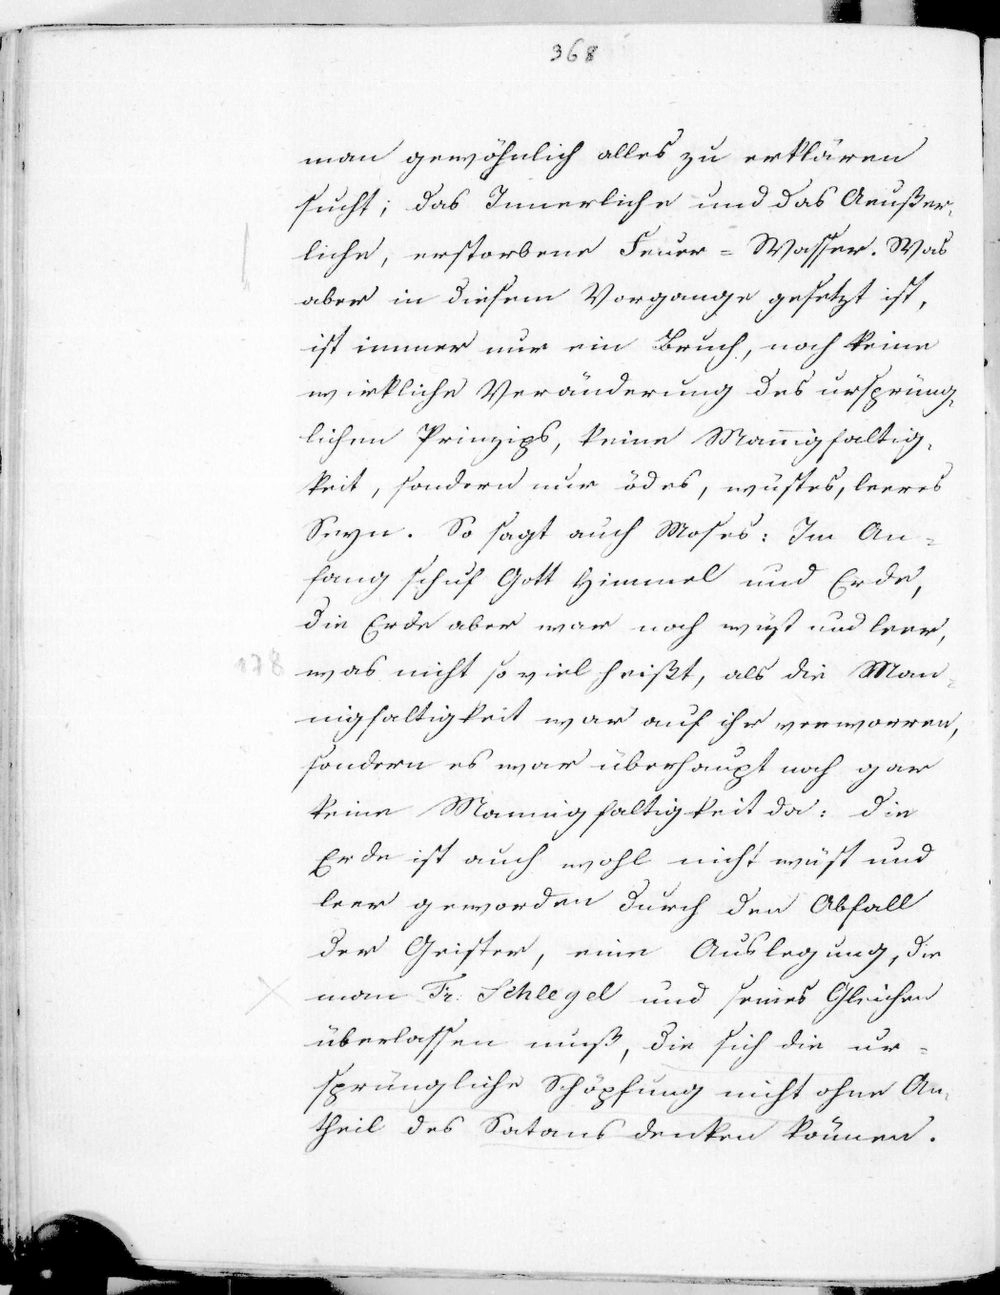 368
man gewöhnlich alles zu erklären
sucht; das Innerliche und das Aeußer-
liche, erstorbene Feuer = Wasser. Was
aber in diesem Vorgange gesetzt ist,
ist immer nur ein Bruch, noch keine
wirkliche Veränderung des ursprüng-
lichen Prinzips, keine Mannigfaltig-
keit, sondern nur ödes, wüstes, leeres
Seyn. So sagt auch Moses: Im An=
fang schuf Gott Himmel und Erde,
die Erde aber war noch wüst und leer,
178 was nicht so viel heißt, als die Man=
nigfaltigkeit war auf ihr verworren,
sondern es war überhaupt noch gar
keine Mannigfaltigkeit da: die
Erde ist auch wohl nicht wüst und
leer geworden durch den Abfall
der Geister, eine Auslegung, die
man Fr. Schlegel und seines Gleichen
überlassen muß, die sich die ur=
sprüngliche Schöpfung nicht ohne An-
theil des Satans denken können.